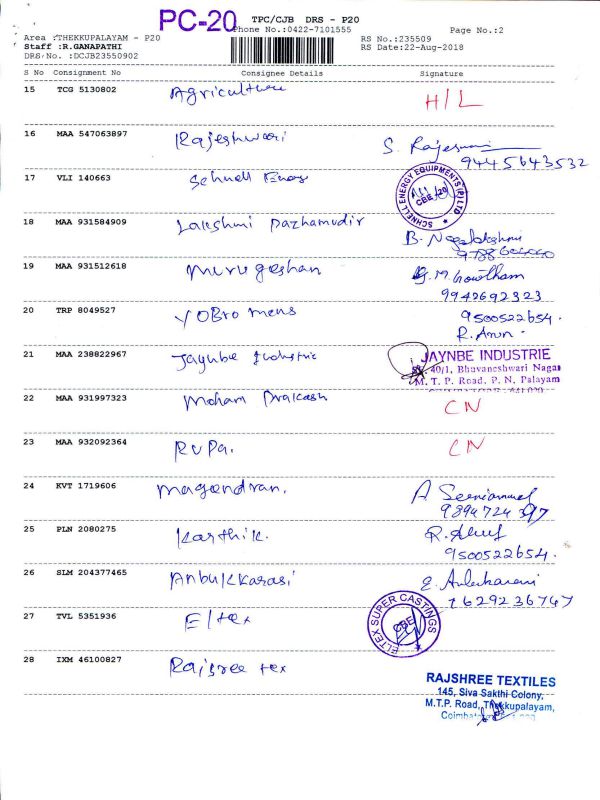 PC-20
TPC/CJB DRS - P20
Phone No.:0422-7101555
Page No.:2
Area :THEKKUPALAYAM - P20
RS No.:235509
Staff :R.GANAPATHI
RS Date:22-Aug-2018
DRS No. :DCJB23550902
S No Consignment No Consignee Details Signature
15 TCG 5130802 Agriculture H/L
16 MAA 547063897 Rajeshwari S. Rajeswari
9445643532
17 VLI 140663 Schnell Energy
SCHNELL ENERGY EQUIPMENTS (P) LTD
CBE-20
18 MAA 931584909 Lakshmi Pazhamudir B. Nagalakshmi
19 MAA 931512618 Murugeshan G.M. Gowtham
9942692323
20 TRP 8049527 YOBro mens 9500522654.
R. Arun.
21 MAA 238822967 Jaynbe Industrie JAYNBE INDUSTRIE
40/1, Bhavaneshwari Nagar
M. T. P. Road, P. N. Palayam
22 MAA 931997323 Moham Prakash CN
23 MAA 932092364 Rupa. CN
24 KVT 1719606 Magendran. A
9894724397
25 PLN 2080275 Karthik. R.
9500522654.
26 SLM 204377465 Anbukkarasi E.
7629236747
27 TVL 5351936 Eltex
ELTEX SUPER CASTINGS
CBE
28 IXM 46100827 Rajsree tex
RAJSHREE TEXTILES
145, Siva Sakthi Colony,
M.T.P. Road, Thekkupalayam,